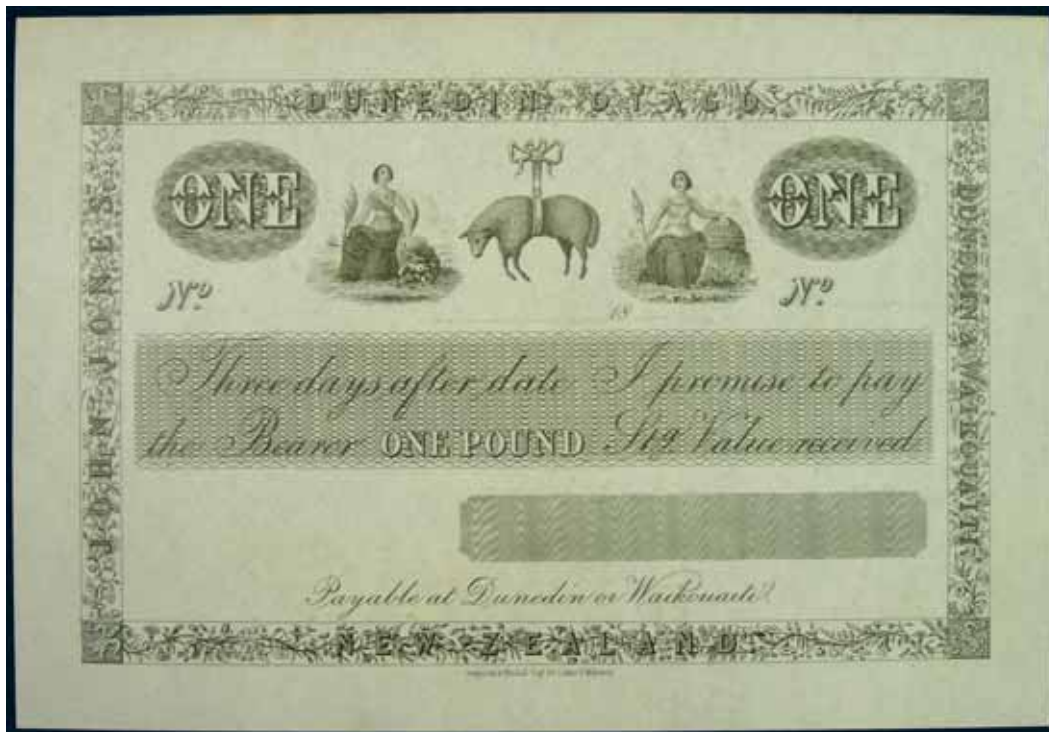 DUNEDIN OTAGO
ONE
ONE
Nº
18
Nº
JOHN JONES.
DUNEDIN & WAIKOUAITI
Three days after date I promise to pay
the Bearer ONE POUND Stg. Value received
Payable at Dunedin or Waikouaiti.
NEW ZEALAND.